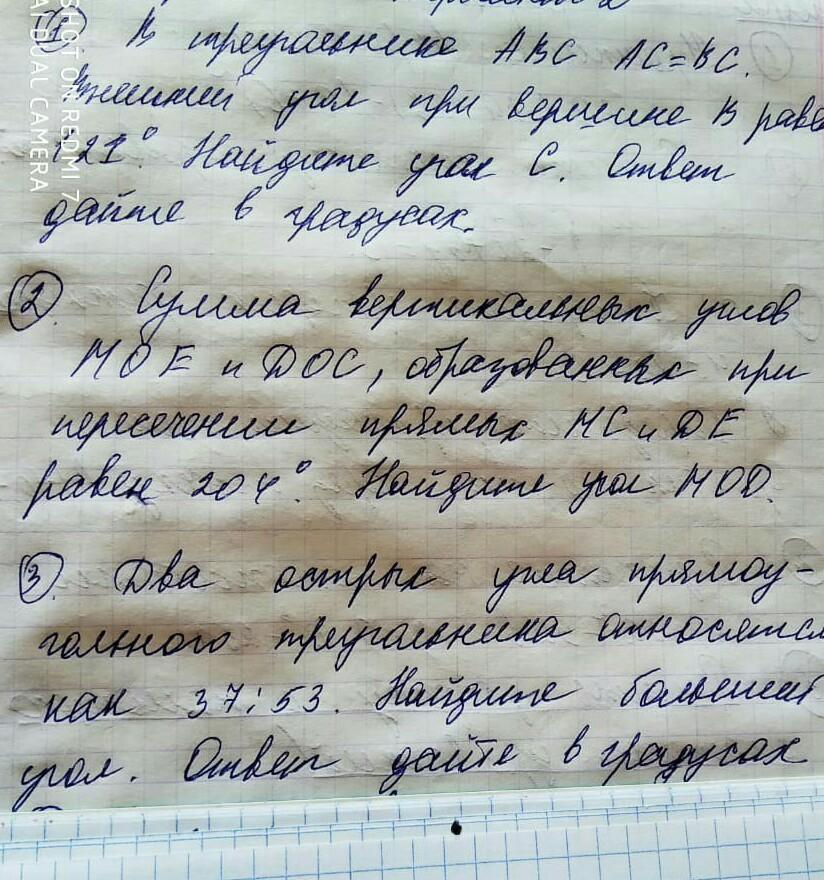 ① В треугольнике ABC AC=BC.
Внешний угол при вершине B раве
121°. Найдите угол C. Ответ
дайте в градусах.
② Сумма вертикальных углов
MOE и DOC, образованных при
пересечении прямых MC и DE
равен 204°. Найдите угол MOD.
③. Два острых угла прямоу-
гольного треугольника относятся
как 37:53. Найдите больший
угол. Ответ дайте в градусах
SHOT ON REDMI 7
AI DUAL CAMERA